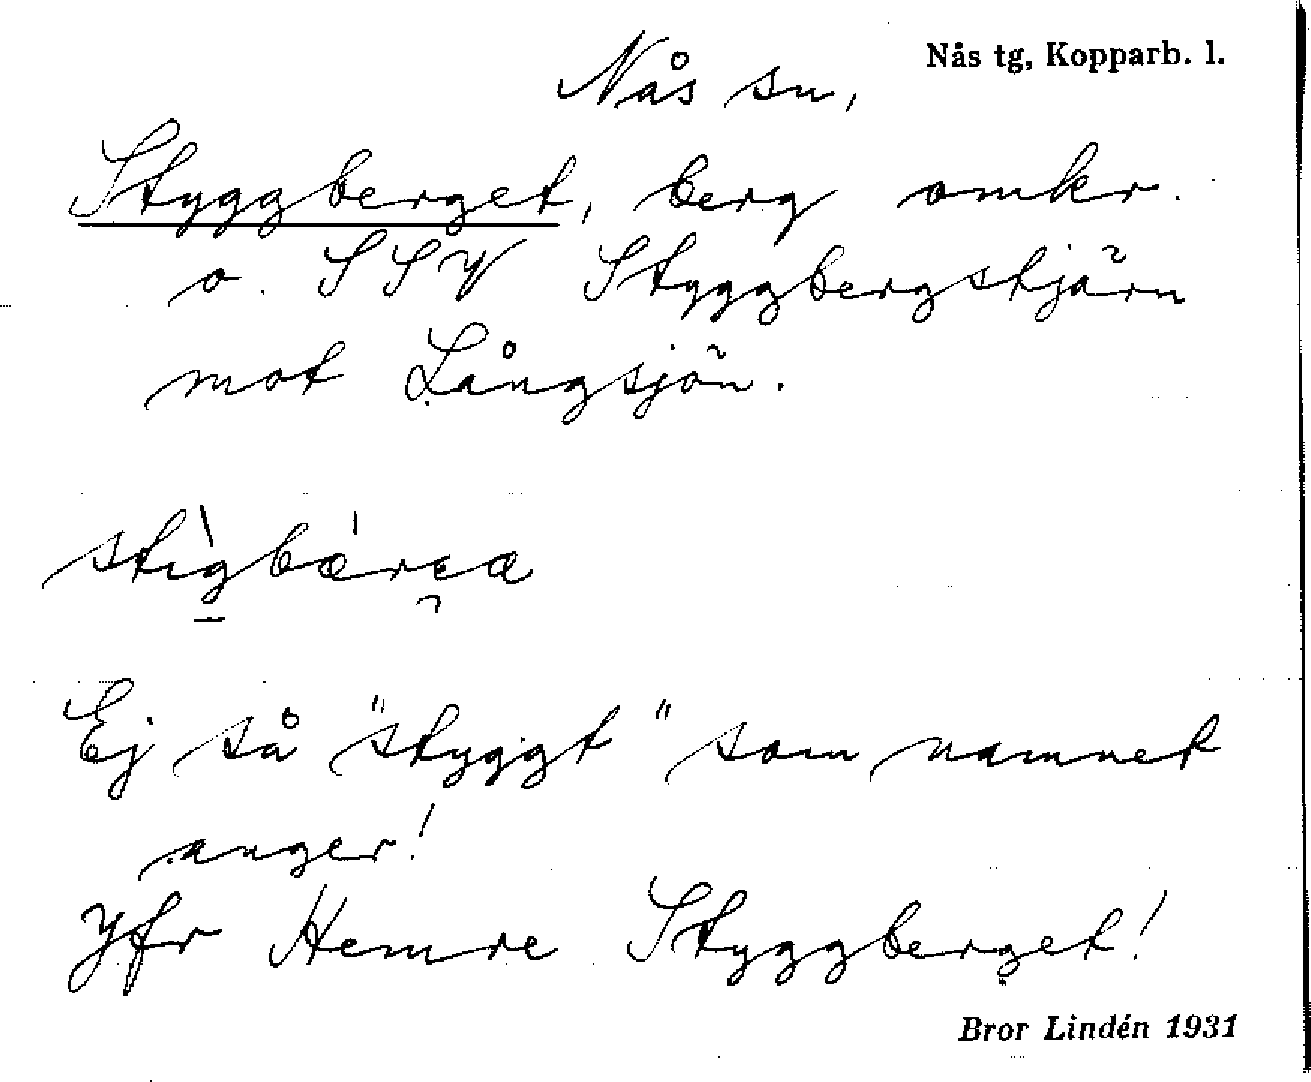 Nås tg, Kopparb. l.
Nås sn,
Styggberget, berg omkr.
o. SSV Styggbergstjärn
mot Långsjön.
Ej så "styggt" som namnet
anger!
Jfr Hemre Styggberget!
Bror Lindén 1931